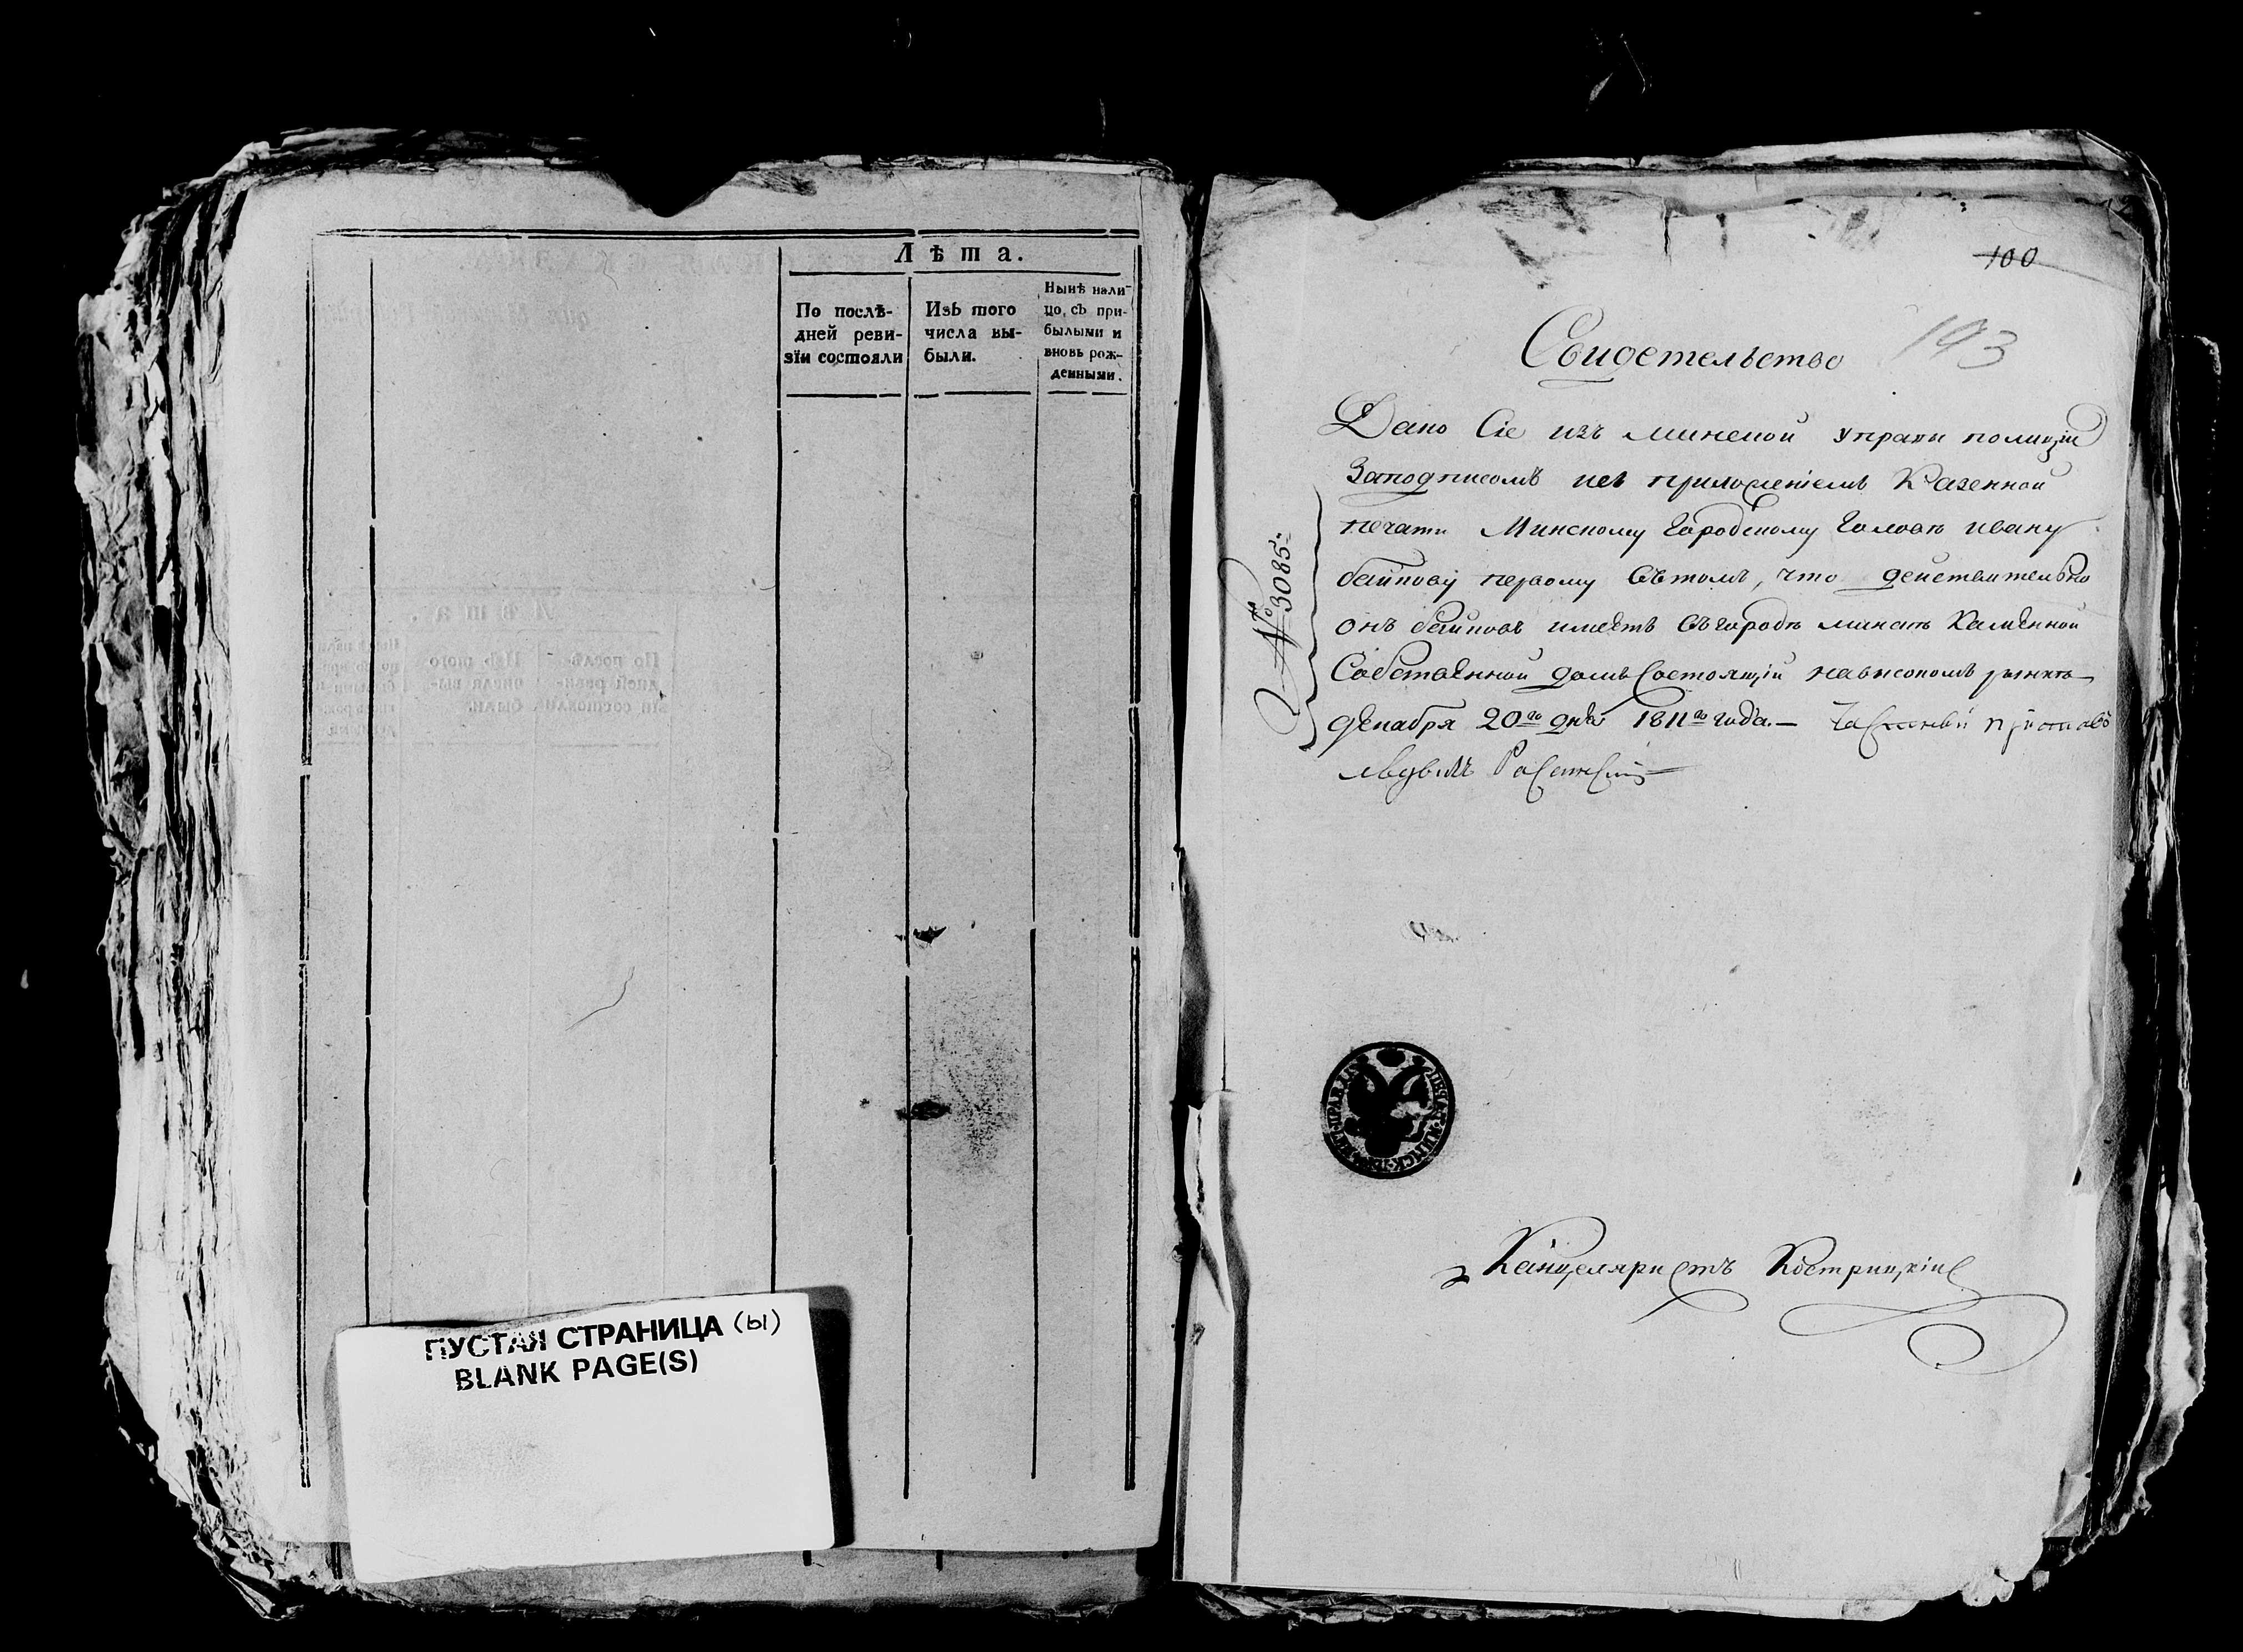 Лѣта.
По послѣ-
дней реви-
зїи состояли
Изъ того
числа вы-
были.
Нынѣ нали-
цо, съ при-
былыми и
вновь рож-
денными.
ПУСТАЯ СТРАНИЦА (ы)
BLANK PAGE(S)
100
193
Свидетельство
Дано Сіе изъ минской управы полиціи
Заподписомъ исъ приложеніемъ Казенной
печати Минскому Городскому Головѣ ивану
байкову первому Вътомъ, что действительно
онъ байковъ имеетъ Въгородѣ минскѣ Каменной
Собственной домъ Состоящій навысокомъ рынкѣ
декабря 20го дня 1811го года.— Частный приставъ
№ 3085
Канцеляристъ Кострицкій